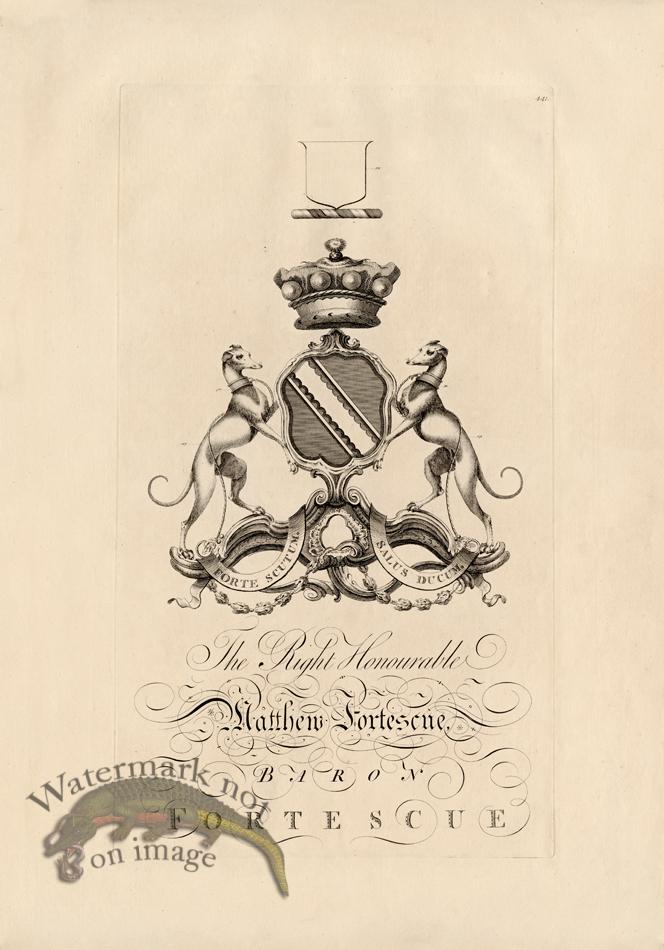 441.
FORTE SCUTUM
SALUS DUCUM
The Right Honourable
Matthew Fortescue,
BARON
FORTESCUE
Watermark not
on image